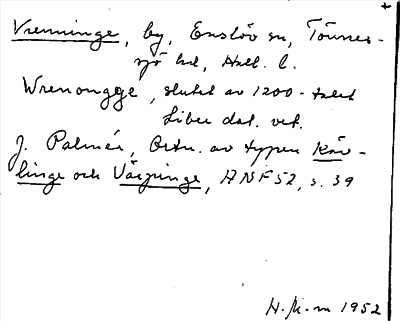 +
Vrenninge, by, Enslöv sn, Tönner-
sjö hd, Hall. l.
Wrenongge, slutet av 1200-talet
Liber dat. vet.
J. Palmér, Ortn. av typen Käv-
linge och Värpinge, ANF 52, s. 39
1952